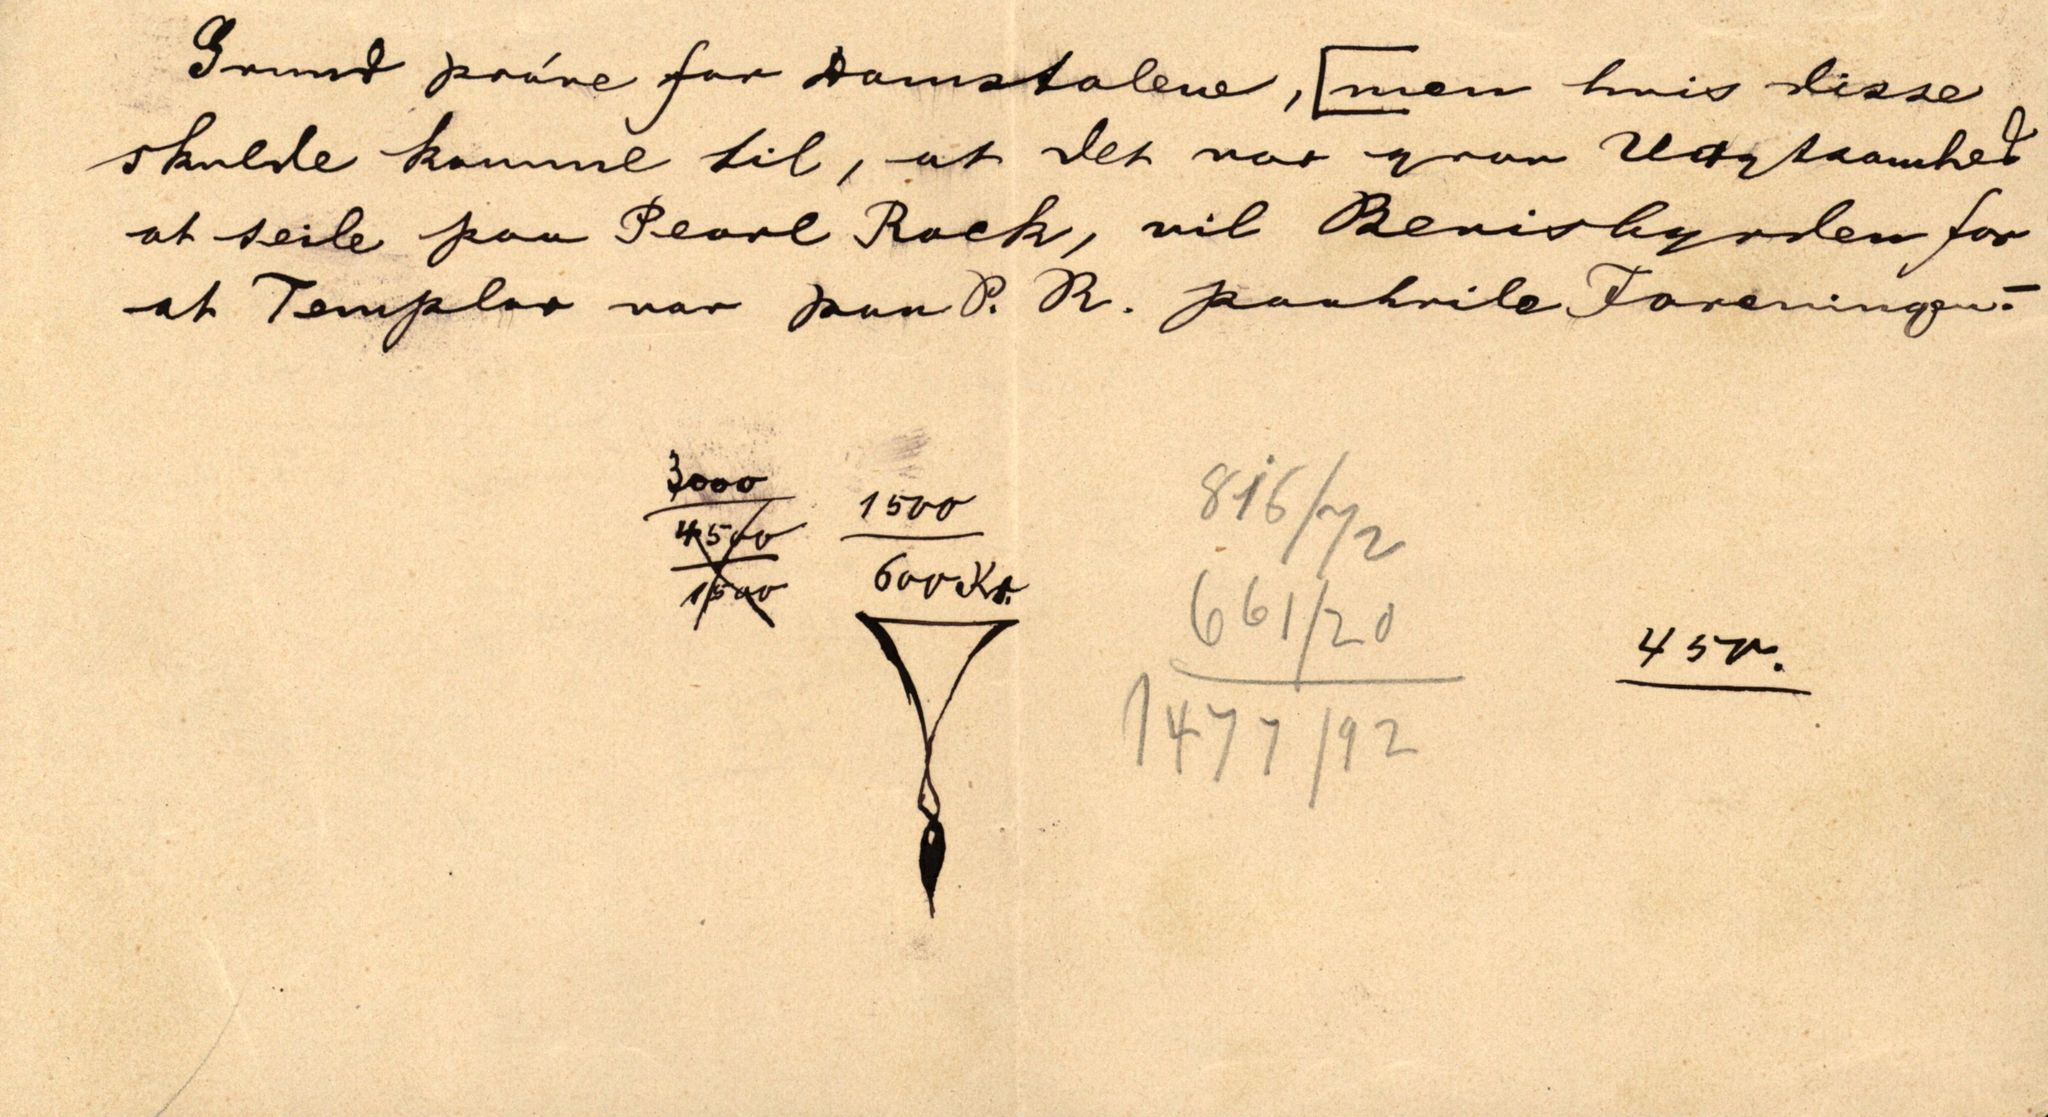 Grund prøve for Domstolene, [men hvis disse
skulde komme til, at det var grov Uagtsomhed
at seile paa Pearl Rock, vil Bevisbyrden for
at Templar var paa P. R. paahvile Foreningen.-
3000
4500
1500
1500
600 Kr.
816/72
661/20
1477/92
450.